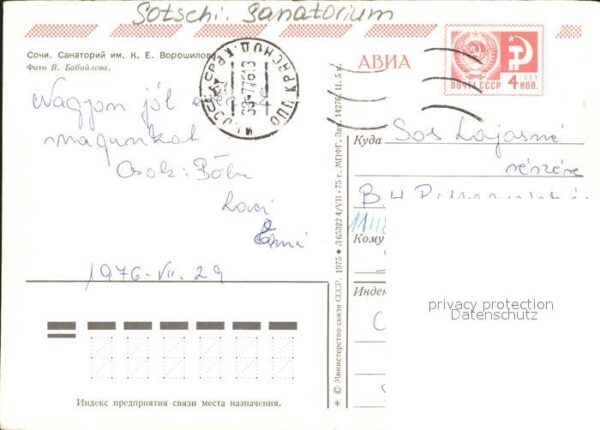 Sotschi. Sanatorium
Сочи. Санаторий им. К. Е. Ворошилова
Фото В. Бабайлова.
АВИА
ПОЧТА СССР 4 КОП.
Nagyon jól
magunkat
Csók: Böbi
Laci
1976. VII. 29
Куда Sos Lajosné
részére
B H
Кому
Индекс
privacy protection
Datenschutz
* © Министерство связи СССР. 1975 ★
Индекс предприятия связи места назначения.